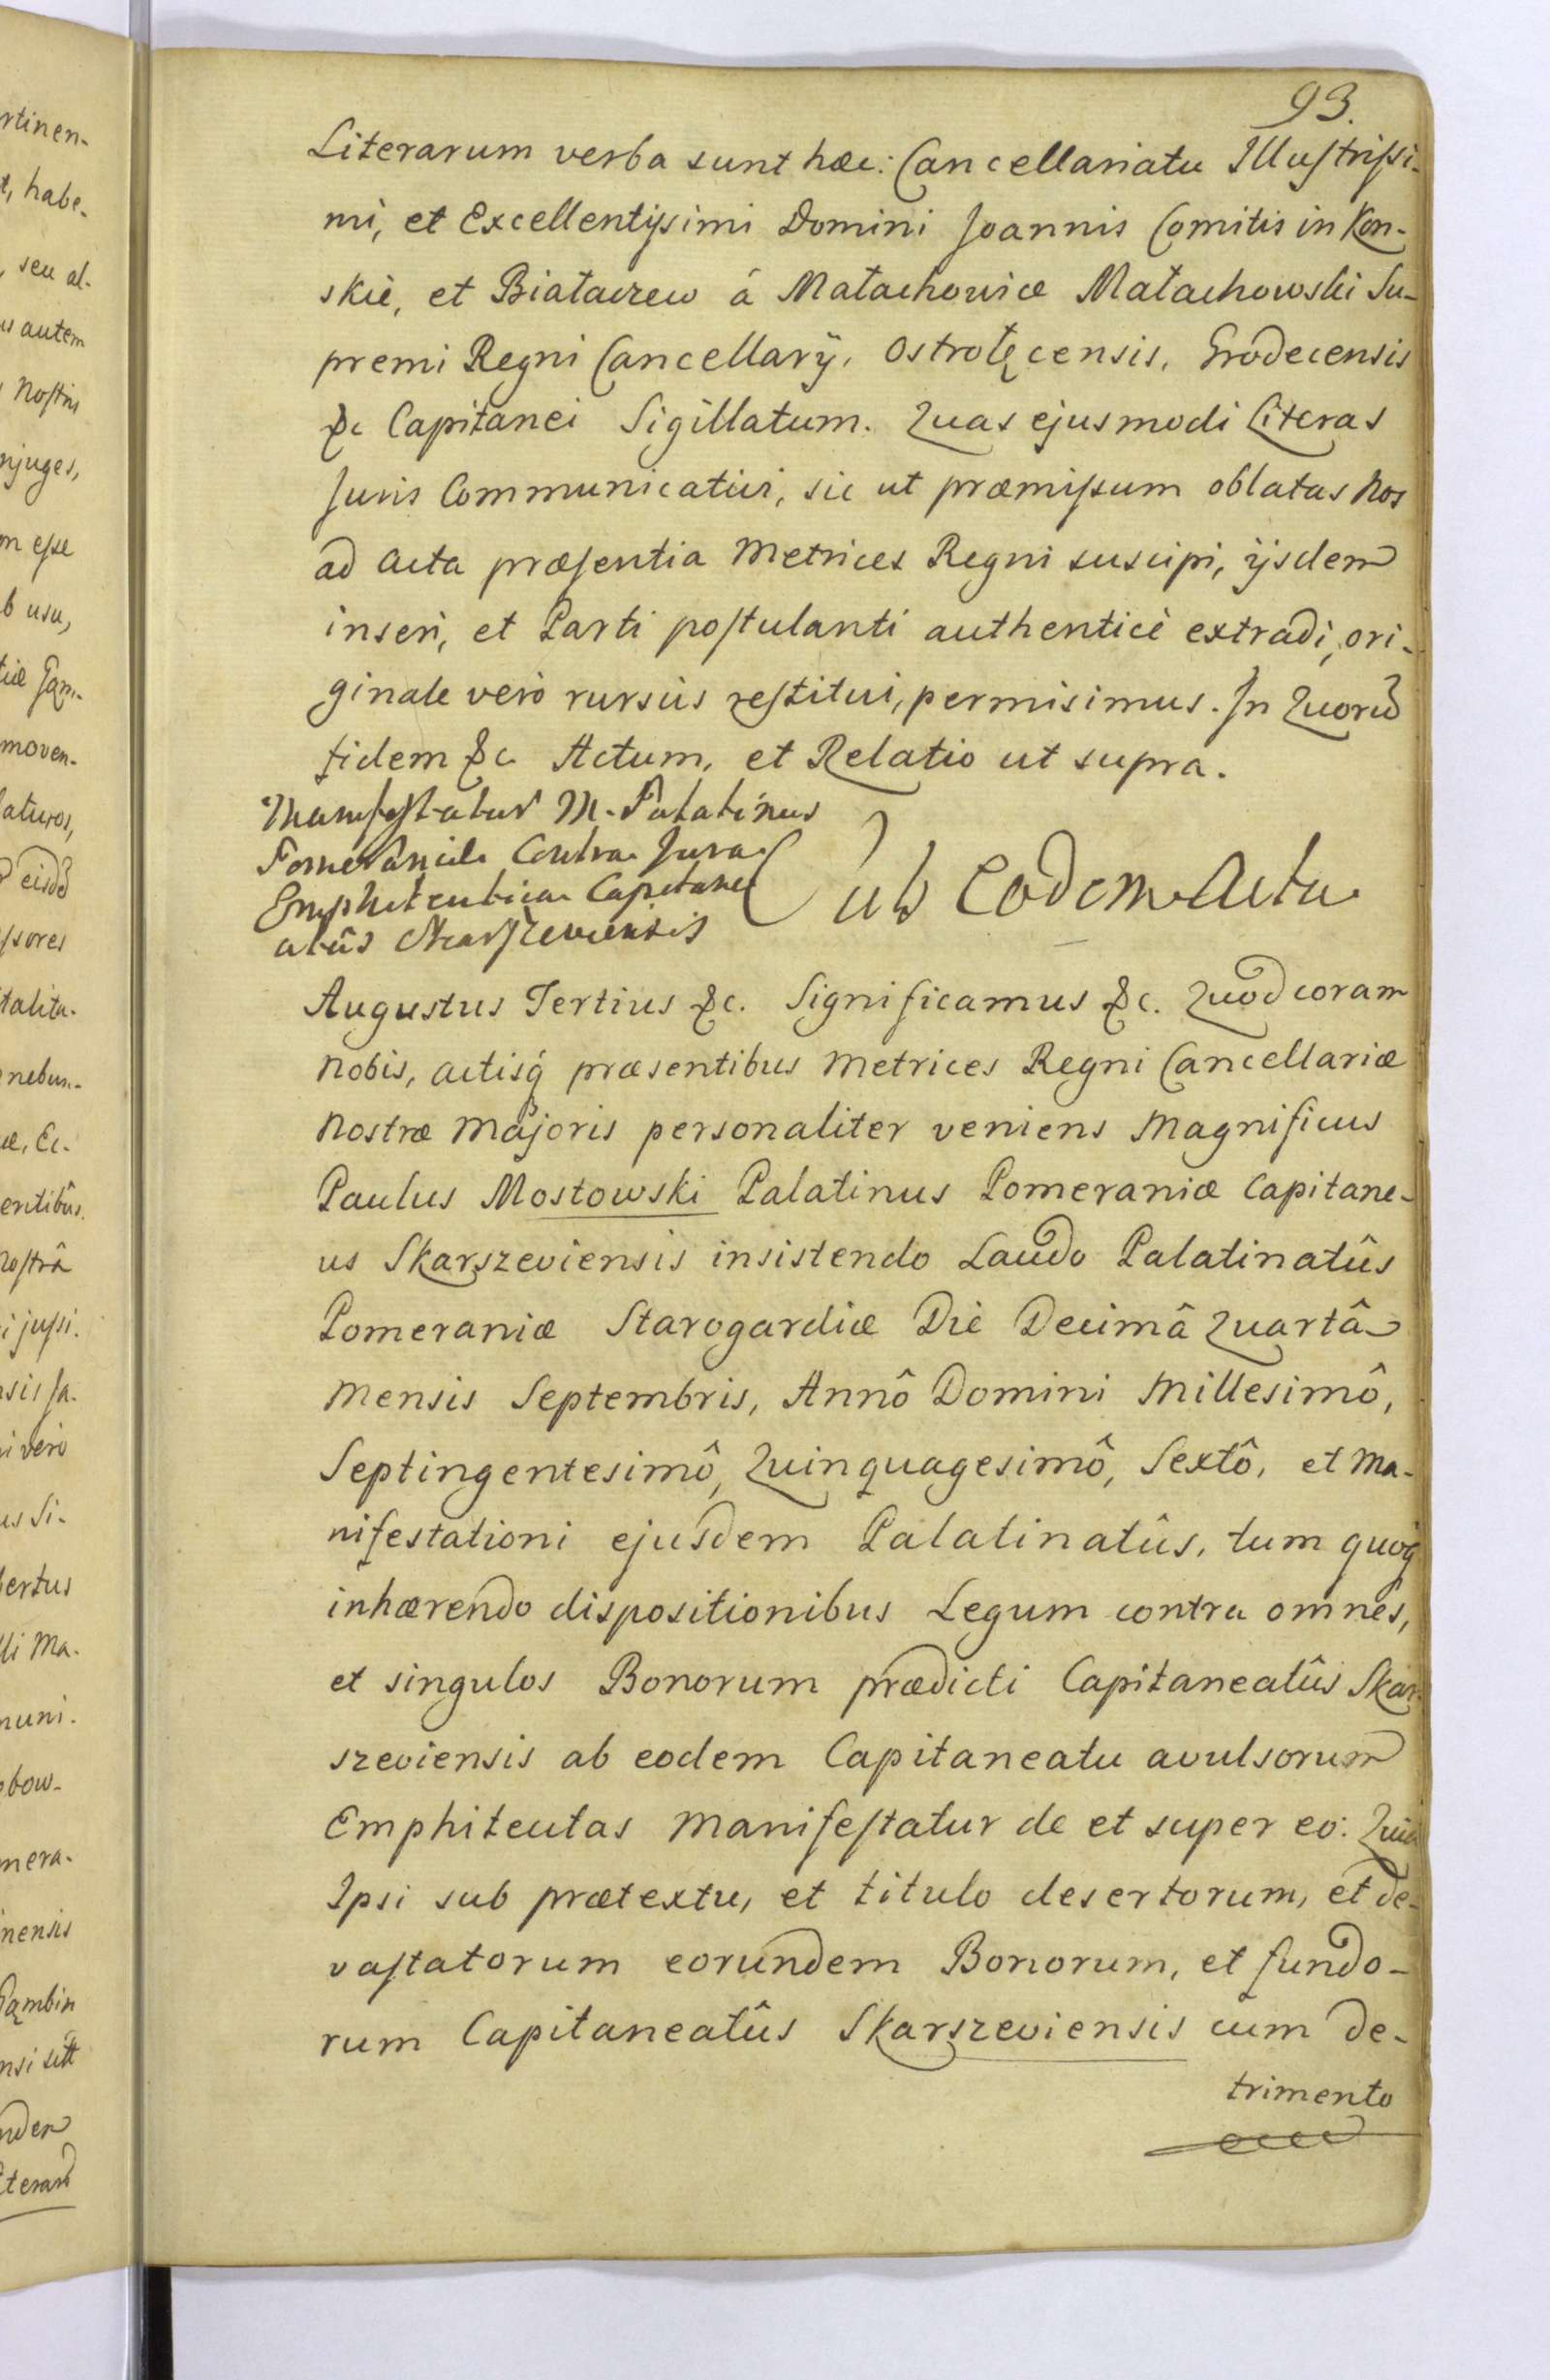 93.
Literarum verba sunt hæc: Cancellariatu Illustrissi-
mi, et Excellentissimi Domini Joannis Comitis in Kon-
skie, et Białaczew á Małachowice Małachowski Su-
premi Regni Cancellarÿ, Ostrołęcensis, Grodecensis
&c Capitanei Sigillatum. Quas ejusmodi Literas
Juris Communicativi, sic ut præmissum oblatas Nos
ad Acta præsentia Metrices Regni suscipi, ijsdem
inseri, et Parti postulanti authenticè extradi, ori-
ginale verò rursùs restitui, permisimus. In Quorū
fidem &c. Actum, et Relatio ut supra.
Manifestatur M. Palatinus
Pomeraniæ Contra Jura
Emphiteutica Capitane
atûs Skarszeviensis
Sub Eodem Actu
Augustus Tertius &c. Significamus &c. Quod coram
Nobis, actisq́ præsentibus Metrices Regni Cancellariæ
Nostræ Majoris personaliter veniens Magnificus
Paulus Mostowski Palatinus Pomeraniæ Capitane-
us Skarszeviensis insistendo Laudo Palatinatûs
Pomeraniæ Starogardiæ Die Decimâ Quartâ
Mensis Septembris, Annô Domini Millesimô,
Septingentesimô, Quinquagesimô, Sextô, et Ma-
nifestationi ejusdem Palatinatûs, tum quoq́
inhærendo dispositionibus Legum contra omnes,
et singulos Bonorum prædicti Capitaneatûs Skar-
szeviensis ab eodem Capitaneatu avulsorum
Emphiteutas Manifestatur de et super eo: Quia
Ipsi sub prætextu, et titulo desertorum, et de-
vastatorum eorundem Bonorum, et fundo-
rum Capitaneatûs Skarszeviensis cum de-
trimento